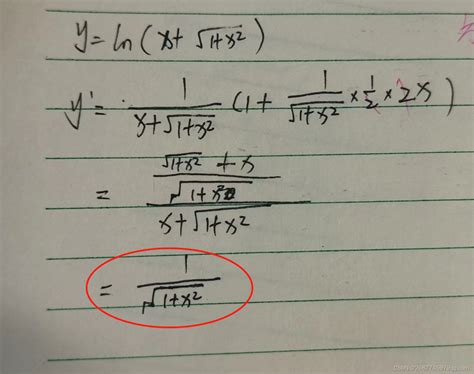 y = ln(x + √(1+x²))
y' = 1/(x+√(1+x²)) (1 + 1/√(1+x²) × 1/2 × 2x)
= ((√(1+x²) + x)/√(1+x²))/(x+√(1+x²))
= 1/√(1+x²)